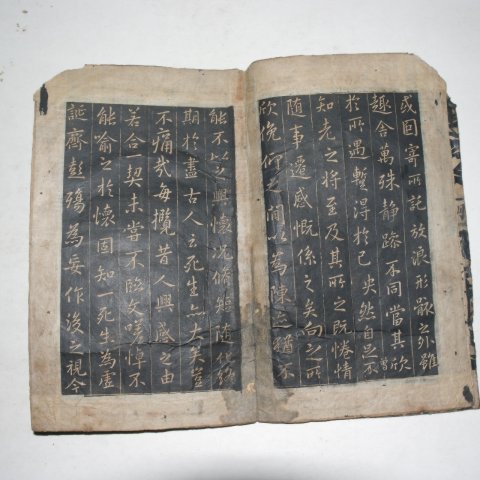 或因寄所託放浪形骸之外雖
趣舍萬殊静躁不同當其欣
於所遇蹔得於己怏然自足不
知老之將至及其所之既惓情
随事遷感慨係之矣向之所
欣俛仰之閒以為陳迹猶不
能不以之興懷況脩短随化終
期於盡古人云死生亦大矣豈
不痛哉每攬昔人興感之由
若合一契未甞不臨文嗟悼不
能喻之於懷固知一死生為虛
誕齊彭殤為妄作後之視今